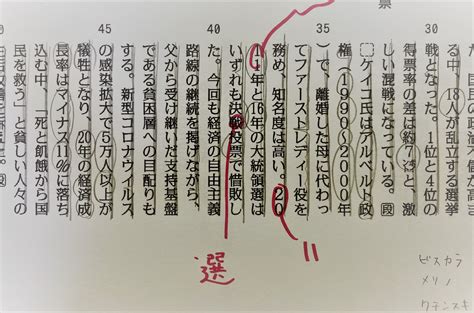 票
30
る中、18人が乱立する選挙
戦となった。1位と4位の
得票率の差は約
%と、激
しい混戦になっている。㊢
ケイコ氏はアルベルト政
権(1990~2000年
35
)で、離婚した母に代わっ
てファーストレディー役を
務め、知名度は高い。20
11年と16年の大統領選は
いずれも決戦投票で惜敗し
40
た。今回も経済の自由主義
路線の継続を掲げながら、
父から受け継いだ支持基盤
である貧困層への目配りも
する。新型コロナウイルス
45
の感染拡大で5万人以上が
犠牲となり、20年の経済成
長率はマイナス11%に落ち
込む中、「死と飢餓から国
民を救う」と貧しい人々の
選
ビスカラ
メリノ
クテンスキ